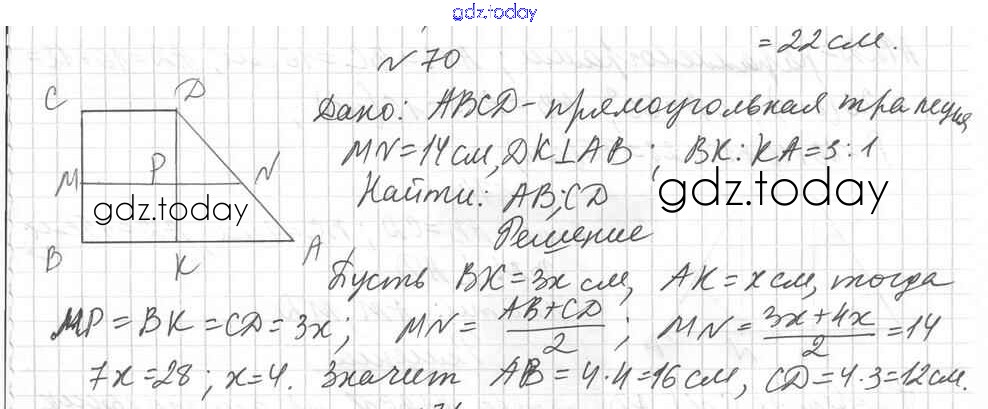 gdz.today
= 22 см.
№ 70
C D
Дано: ABCD - прямоугольная трапеция
MN = 14 см, DK⊥AB ; BK : KA = 3 : 1
M P N
Найти: AB; CD
gdz.today
gdz.today
Решение
B K A
Пусть BK = 3x см, AK = x см, тогда
MP = BK = CD = 3x ; MN = (AB + CD)/2 ; MN = (3x + 4x)/2 = 14
7x = 28 ; x = 4. Значит AB = 4 · 4 = 16 см, CD = 4 · 3 = 12 см.